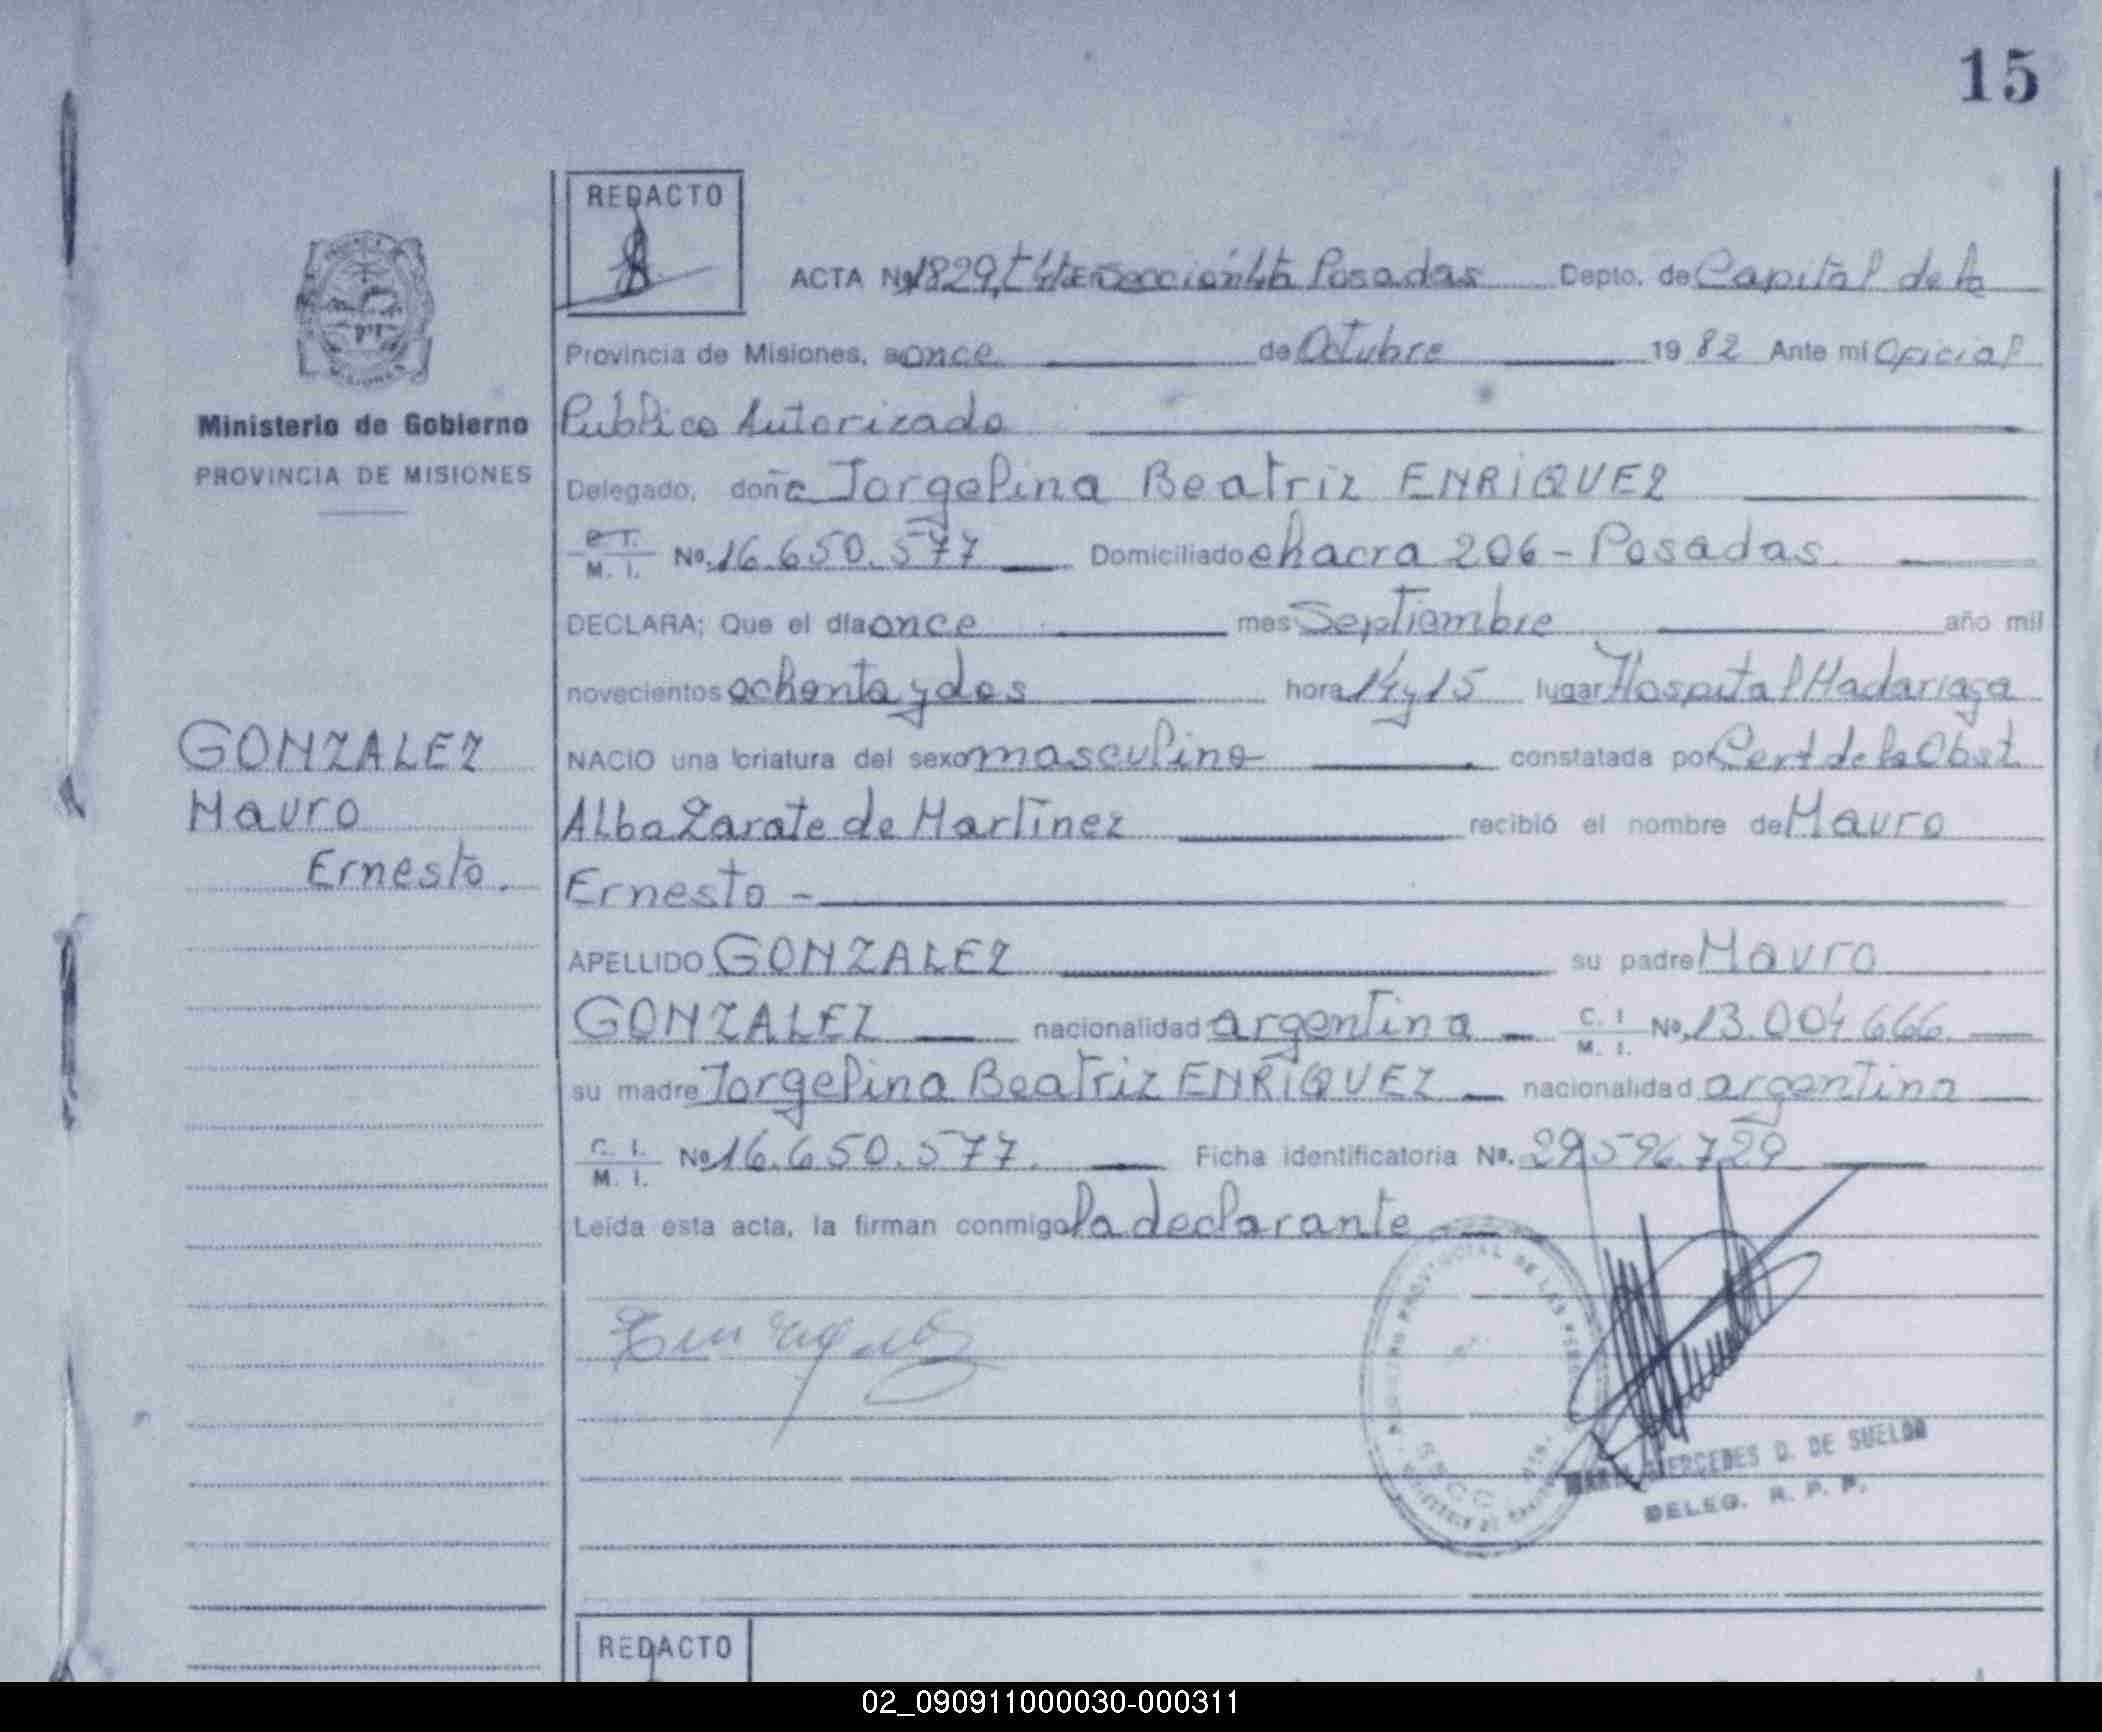 15
REDACTO
ACTA Nº 1829, Tº 4ta En Sección 4ta Posadas Depto. de Capital de la
Provincia de Misiones, a once de Octubre 19 82 Ante mí Oficial
Publico Autorizado
Ministerio de Gobierno
PROVINCIA DE MISIONES
Delegado, doña Jorgelina Beatriz ENRIQUEZ
M. I. Nº. 16.650.577 Domiciliado chacra 206 - Posadas
DECLARA; Que el día once mes Septiembre año mil
novecientos ochenta y dos hora 14 y 15 lugar Hospital Madariaga
GONZALEZ
Mauro
Ernesto.
NACIO una criatura del sexo masculino constatada por Cert de la Obst
Alba Zarate de Martinez recibió el nombre de Mauro
Ernesto -
APELLIDO GONZALEZ su padre Mauro
GONZALEZ nacionalidad argentina C. I. M. I. Nº. 13.004.666
su madre Jorgelina Beatriz ENRIQUEZ nacionalidad argentina
C. I. M. I. Nº 16.650.577. Ficha identificatoria Nº. 29.596.729
Leída esta acta, la firman conmigo la declarante
Enriquez
MERCEDES D. DE SUELDO
DELEG. R. P. P.
REDACTO
02_090911000030-000311